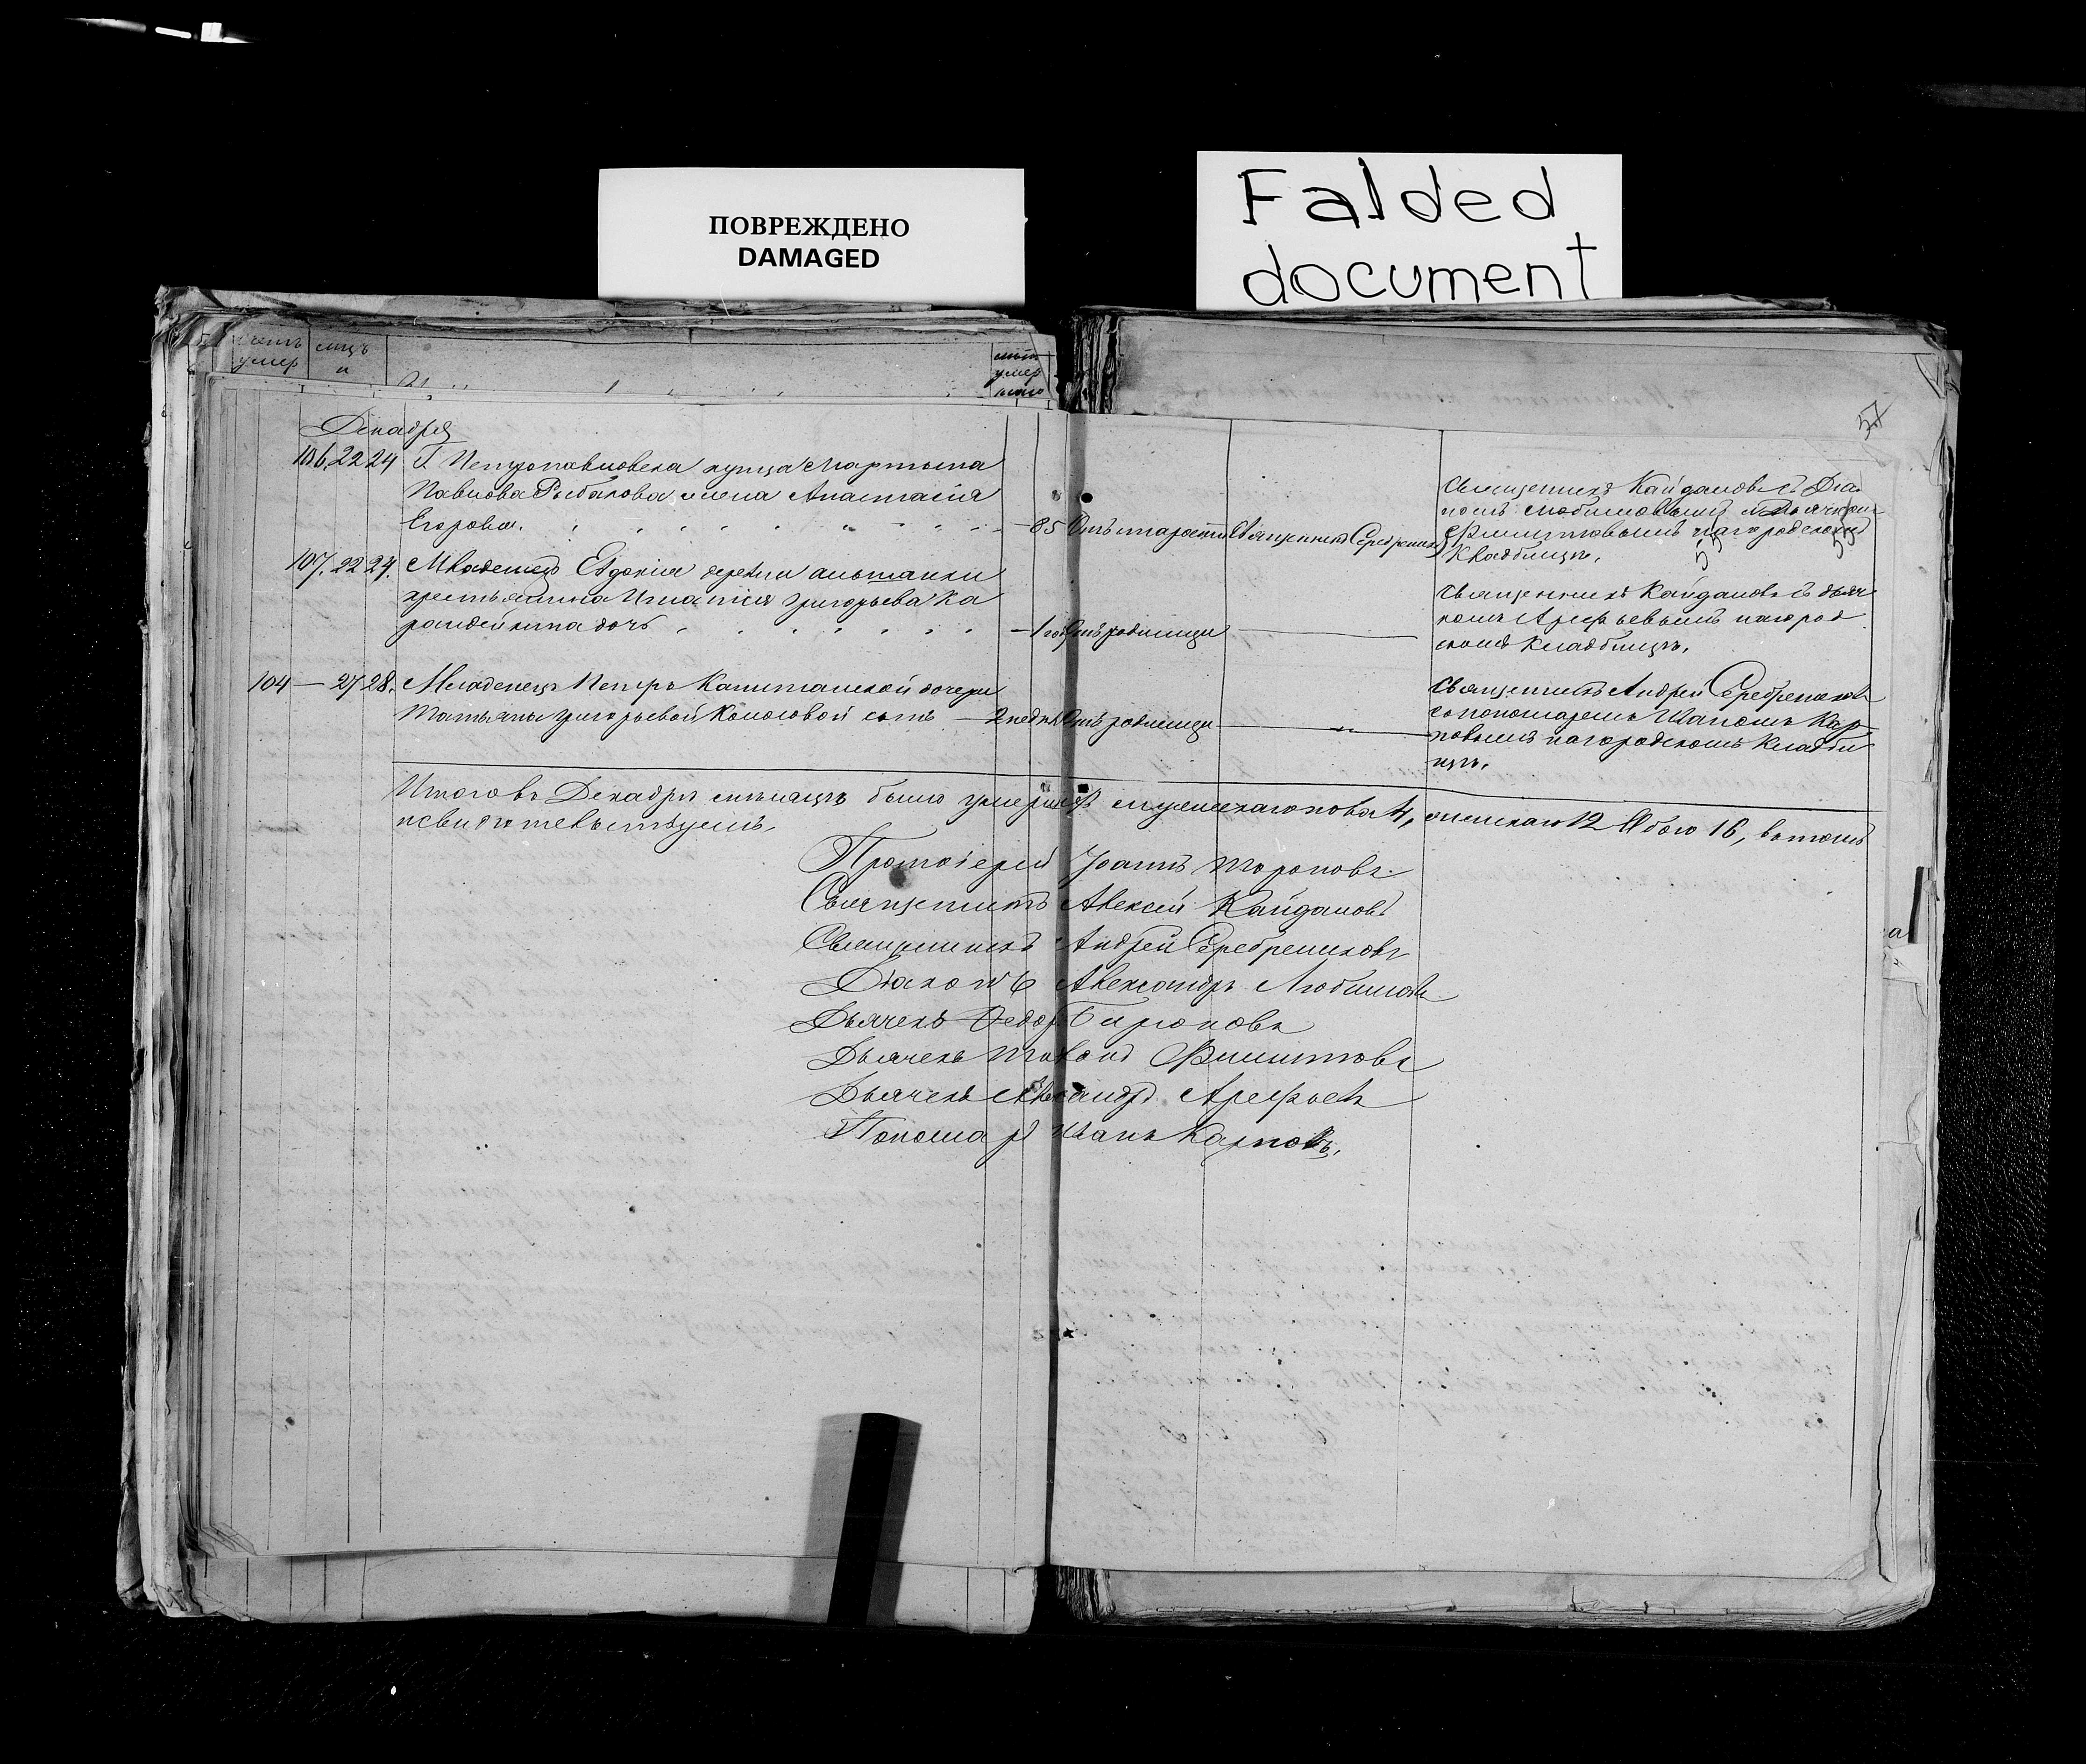 ПОВРЕЖДЕНО
DAMAGED
Falded
document
умер
мцъ
и
умер
шаго
57
Декабря
106. 22 24 Г. Петропавловска купца Мартына
Павлова Рыбакова жена Анастасія
Егорова. — 85 Отъ старости Священникъ Серебренниковъ
Священникъ Кайдаловъ съ Діа
кономъ Любимовымъ и Дьячкомъ
Филитовымъ на городскомъ
Кладбищѣ.
107. 22 24. Младенецъ Евдокія деревни
крестьянина Игнатія Григорьева Ка
дочь — 1 годъ Отъ родимца —
Священникъ Кайдаловъ съ дьяч
комъ Арефьевымъ на город
скомъ Кладбищѣ.
104 — 27 28. Младенецъ Петръ Капитанской дочери
Татьяны Григорьевой Колосовой сынъ — 2 недѣл Отъ родимца — " —
Священникъ Андрей Серебрениковъ
съ пономаремъ Иваномъ Кар
повымъ на городскомъ Кладби
щѣ.
Итого въ Декабрѣ мѣсяцѣ было умершихъ мужескаго пола 4, женскаго 12 Обоего 16, въ томъ
и свидѣтельствуемъ
Протоіерей Іоаннъ Тороповъ.
Священникъ Алексей Кайдаловъ
Священникъ Андрей Серебрениковъ
Діаконъ Александръ Любимовъ
Дьячекъ Федоръ Бирюковъ
Дьячекъ Филитовъ
Дьячекъ Александръ Арефьевъ
Пономарь Иванъ Карповъ.